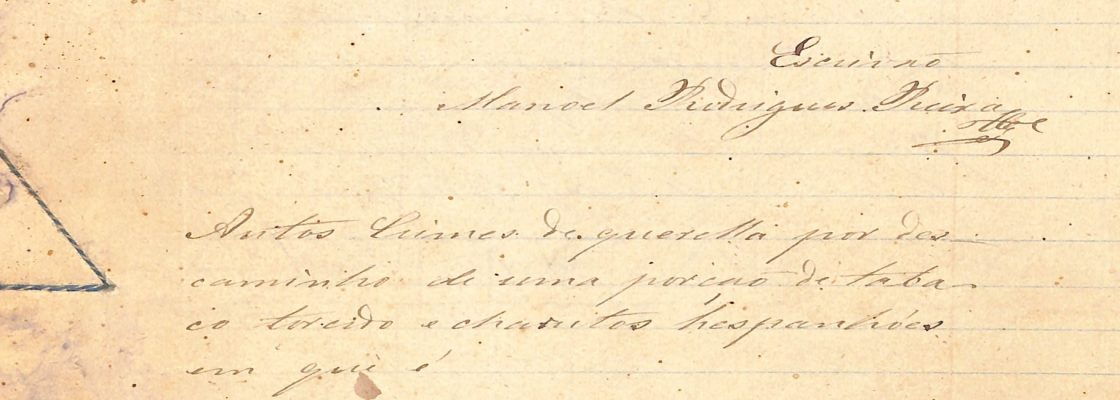 Escrivão
Manoel Rodrigues
Autos Crimes de querella por des-
caminho de uma porção de taba-
co torcido e charutos hespanhóes
em que é